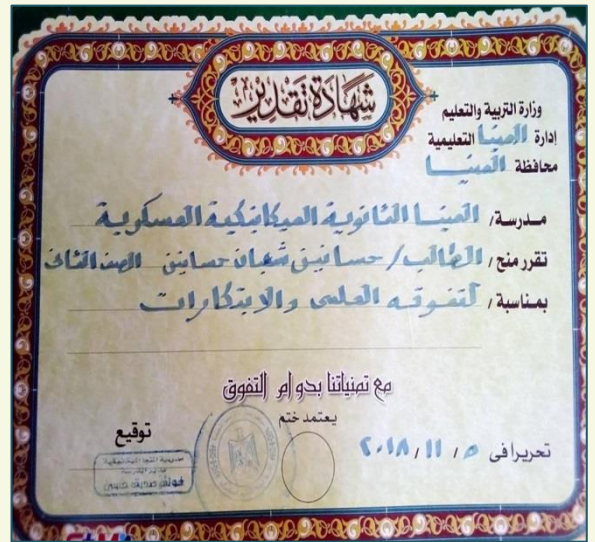 شهادة تقدير
وزارة التربية والتعليم
إدارة المنيا التعليمية
محافظة المنيا
مدرسة / المنيا الثانوية الميكانيكية العسكرية
تقرر منح / الطالب / حسانين شعبان حسانين الصف الثانى
بمناسبة / لتفوقه العلمى والابتكارات
مع تمنياتنا بدوام التفوق
يعتمد ختم
توقيع
تحريرا فى ٥ / ١١ / ٢٠١٨